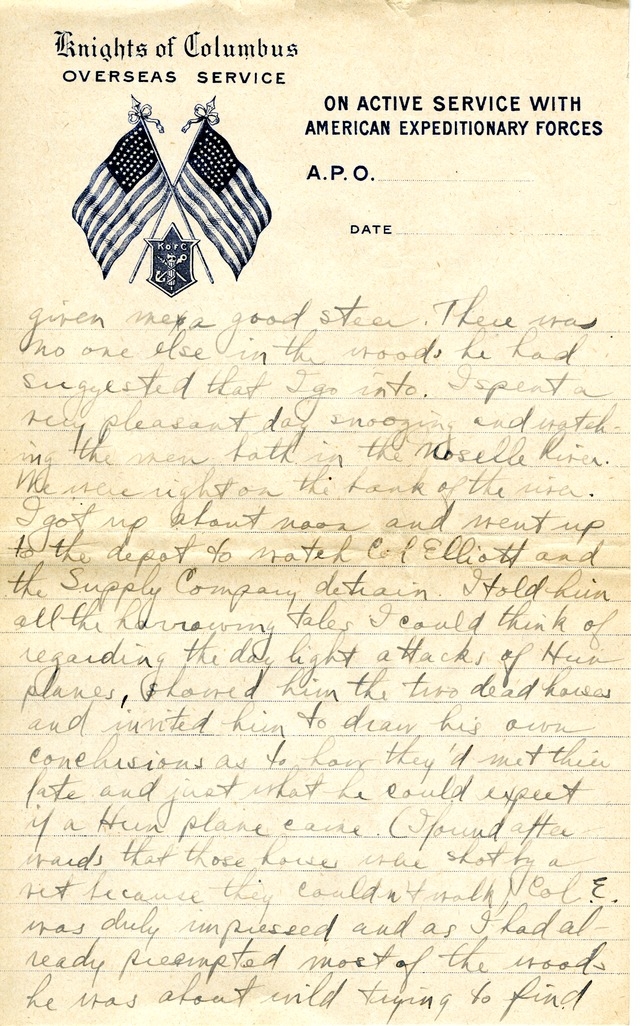 Knights of Columbus
OVERSEAS SERVICE
ON ACTIVE SERVICE WITH
AMERICAN EXPEDITIONARY FORCES
A.P.O.
DATE
K of C
given me a good steer. There was
no one else in the woods he had
suggested that I go into. I spent a
very pleasant day snoozing and watch-
ing the men bath in the Moselle River.
We were right on the bank of the river.
I got up about noon and went up
to the depot to watch Col Elliott and
the Supply Company detrain. I told him
all the harrowing tales I could think of
regarding the day light attacks of Hun
planes, showed him the two dead horses
and invited him to draw his own
conclusions as to how they'd met their
fate and just what he could expect
if a Hun plane came. (I found after-
wards that those horses were shot by a
vet because they couldn't walk) Col E.
was duly impressed and as I had al-
ready preempted most of the woods
he was about wild trying to find